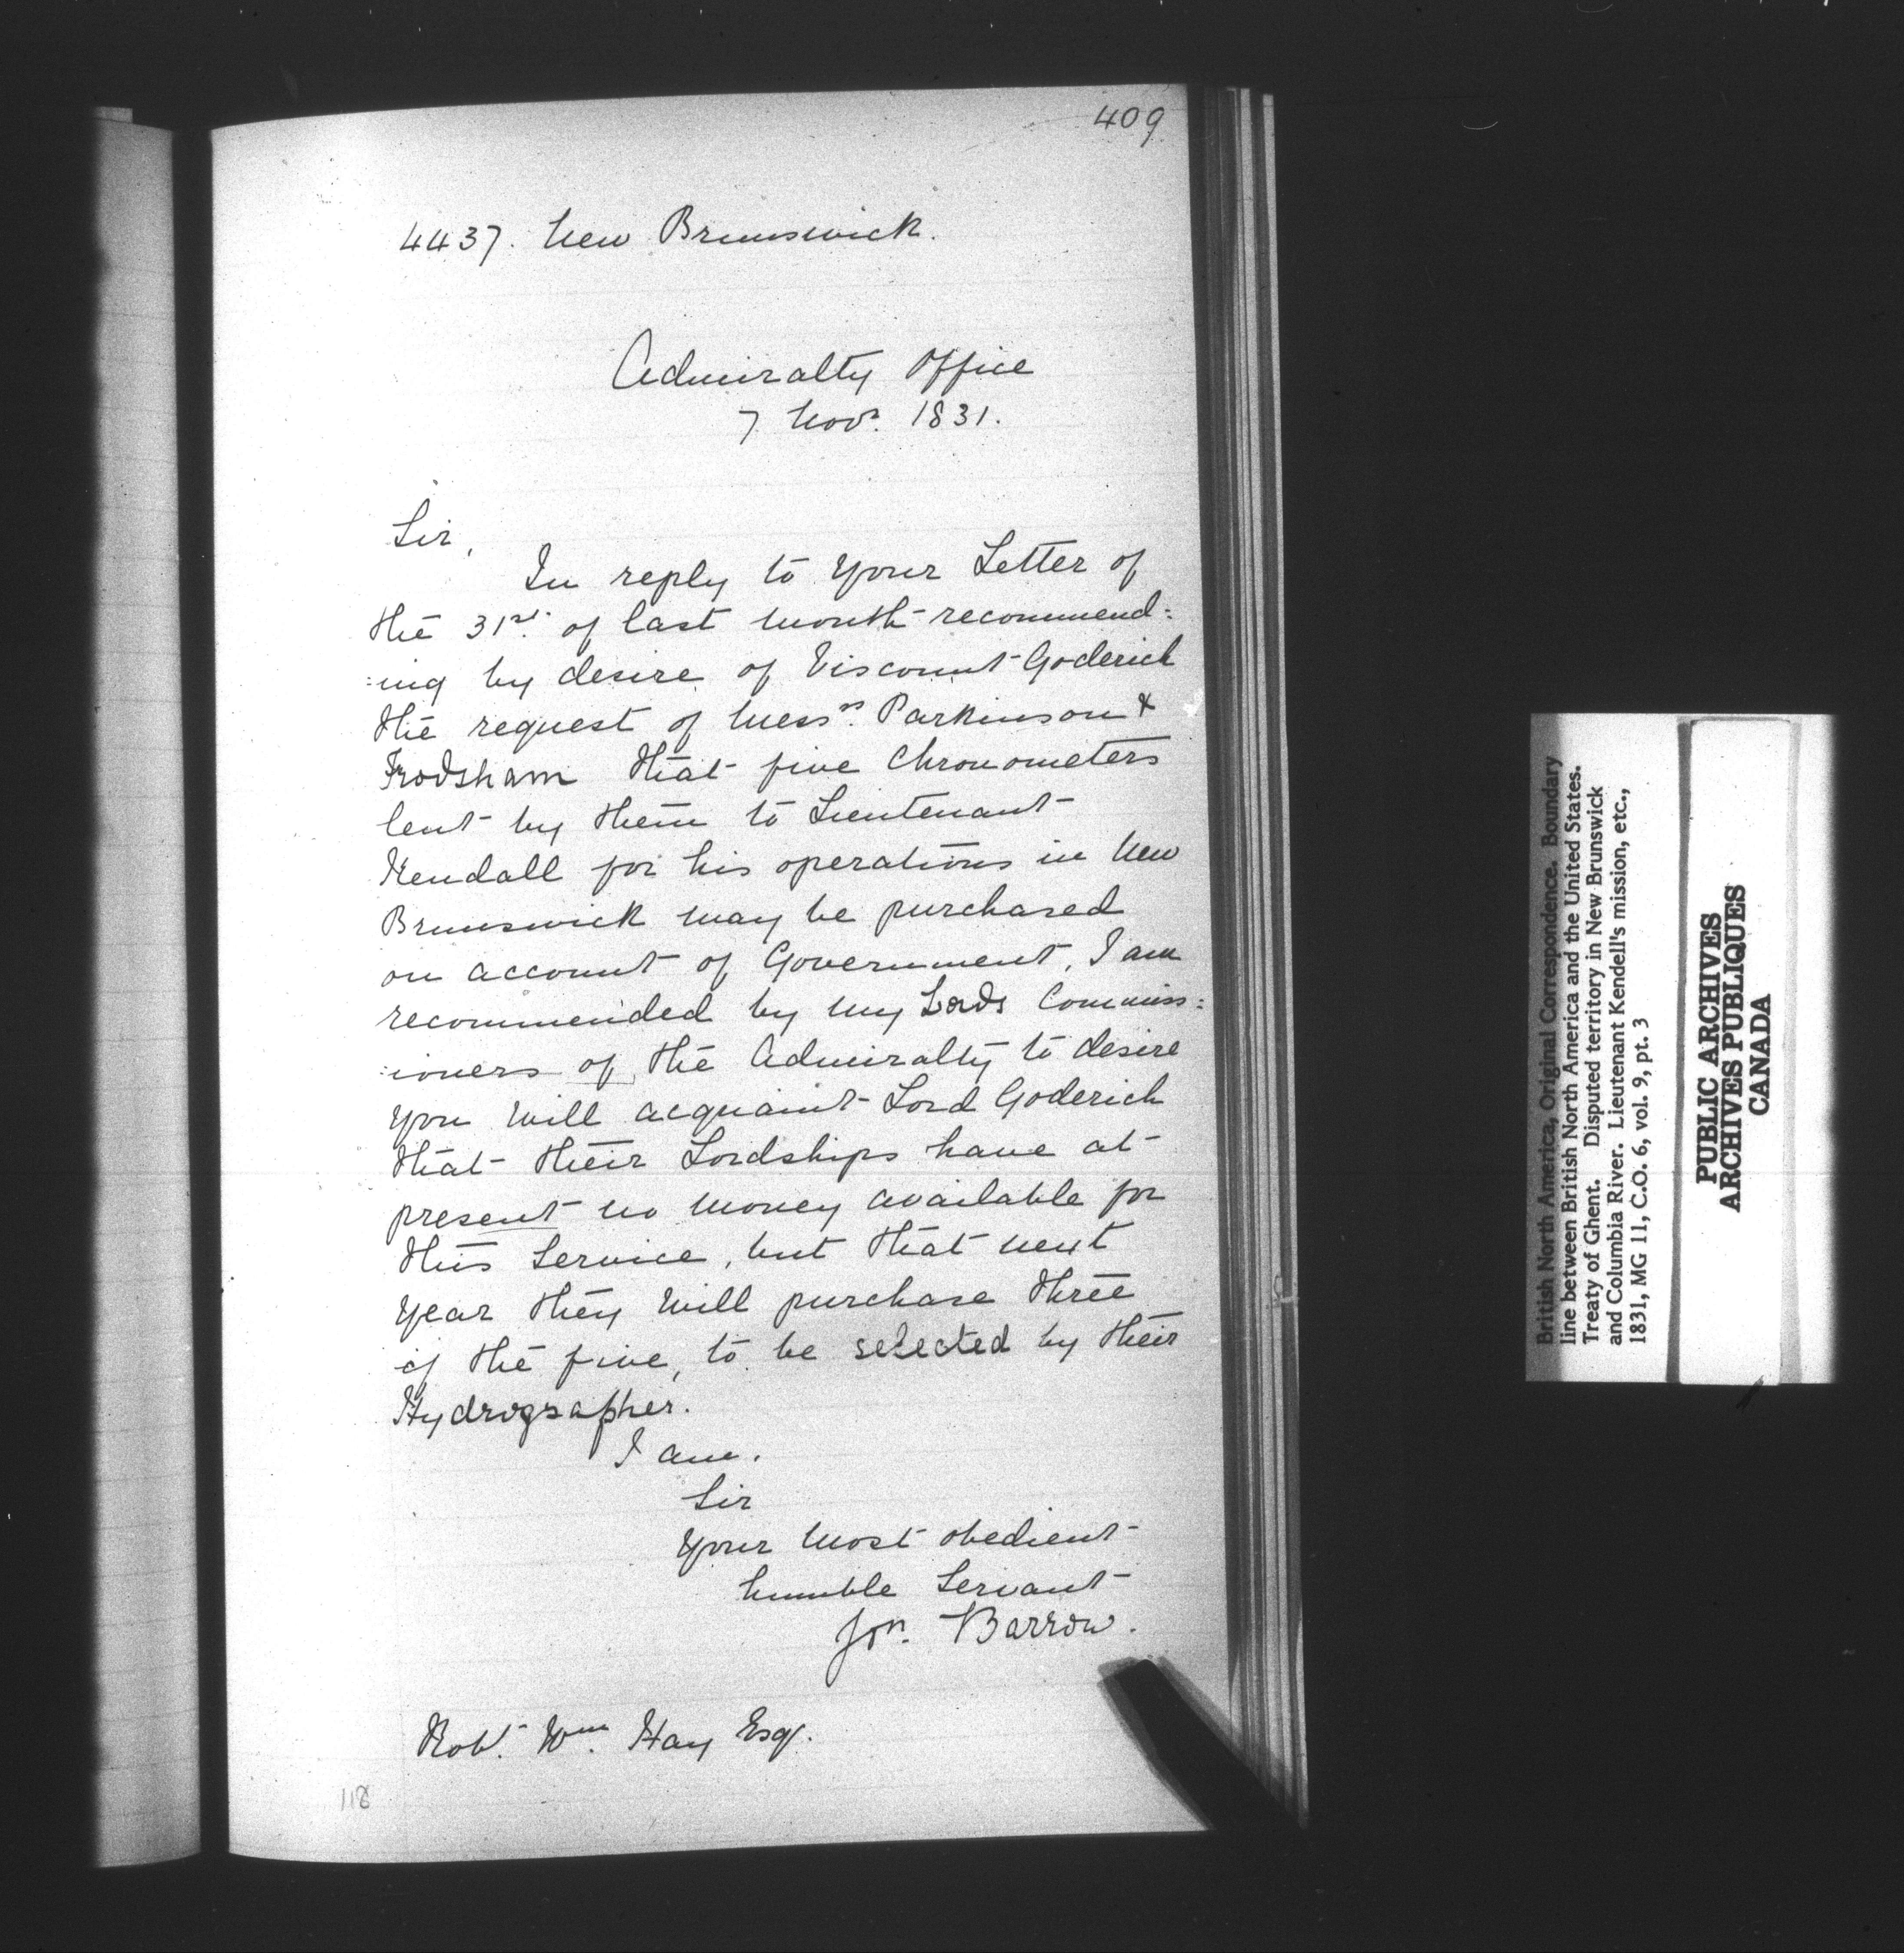 409
4437. New Brunswick.
Admiralty Office
7 Novr. 1831.
Sir,
In reply to your Letter of
the 31st. of last month recommend:
:ing by desire of Viscount Goderich
the request of Messrs. Parkinson &
Frodsham that five Chronometers
lent by them to Lieutenant
Kendall for his operations in New
Brunswick may be purchased
on account of Government, I am
recommended by my Lords Commiss:
:ioners of the Admiralty to desire
you will acquaint Lord Goderich
that their Lordships have at
present no money available for
this Service, but that next
year they will purchase three
of the five, to be selected by their
Hydrographer.
I am.
Sir
Your most obedient
humble Servant
Jon. Barrow.
Robt. Wm. Hay Esqr.
118
British North America, Original Correspondence. Boundary
line between British North America and the United States.
Treaty of Ghent. Disputed territory in New Brunswick
and Columbia River. Lieutenant Kendell's mission, etc.,
1831, MG 11, C.O. 6, vol. 9, pt. 3
PUBLIC ARCHIVES
ARCHIVES PUBLIQUES
CANADA